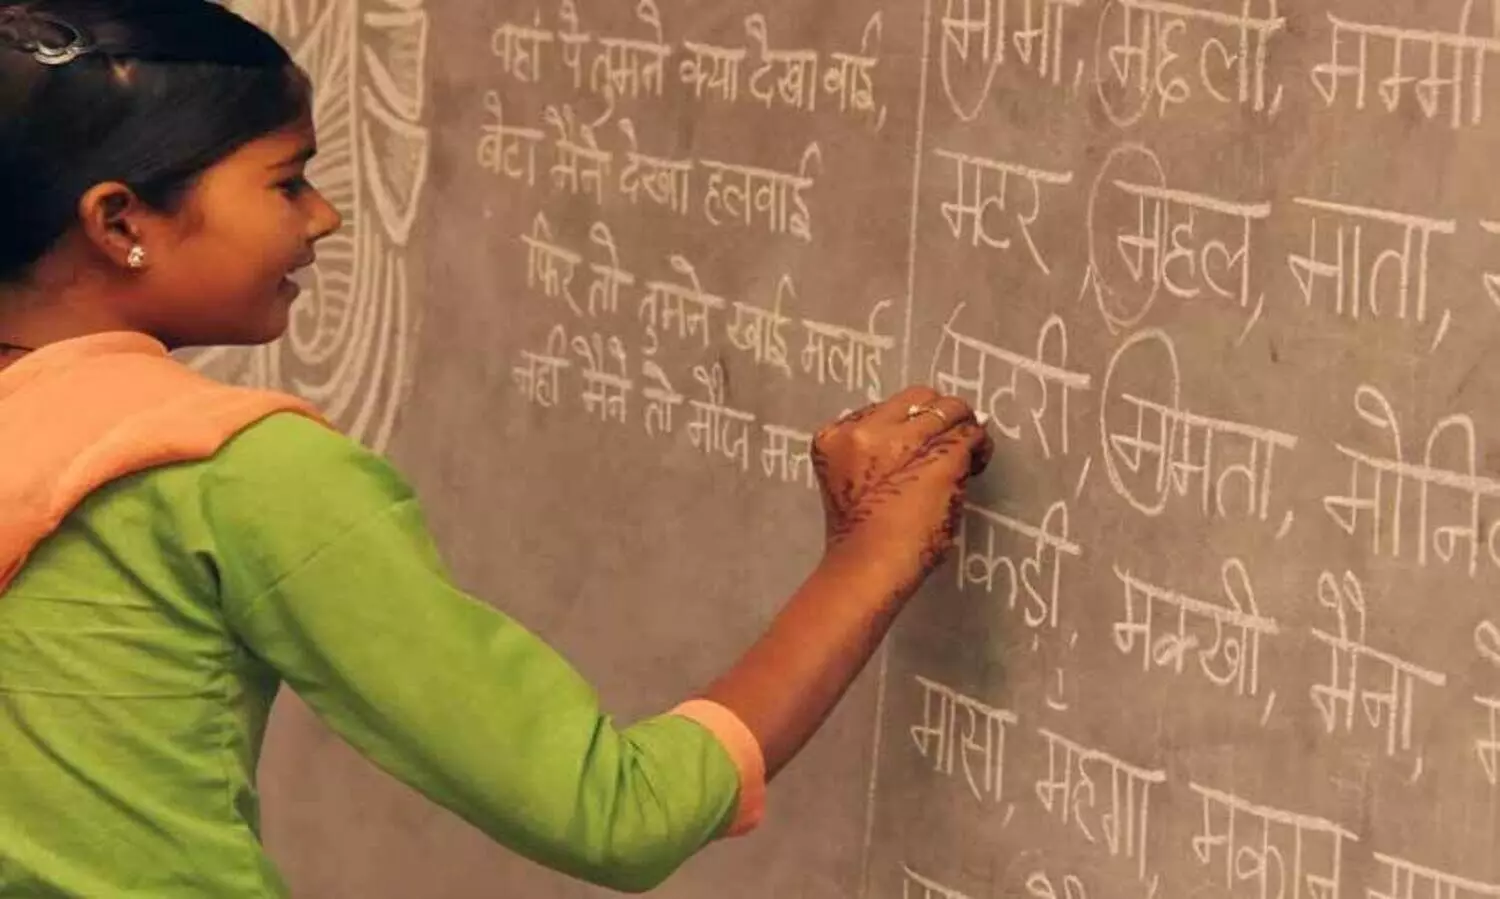 वहां पे तुमने क्या देखा बाई,
बेटा मैंने देखा हलवाई
फिर तो तुमने खाई मलाई
नही मैंने तो मौज मन
मामी, मछली, मम्मी
मटर, महल, माता,
मटरी, ममता, मोनि
मकड़ी, मक्खी, मैना,
मासा, महगा, मकान